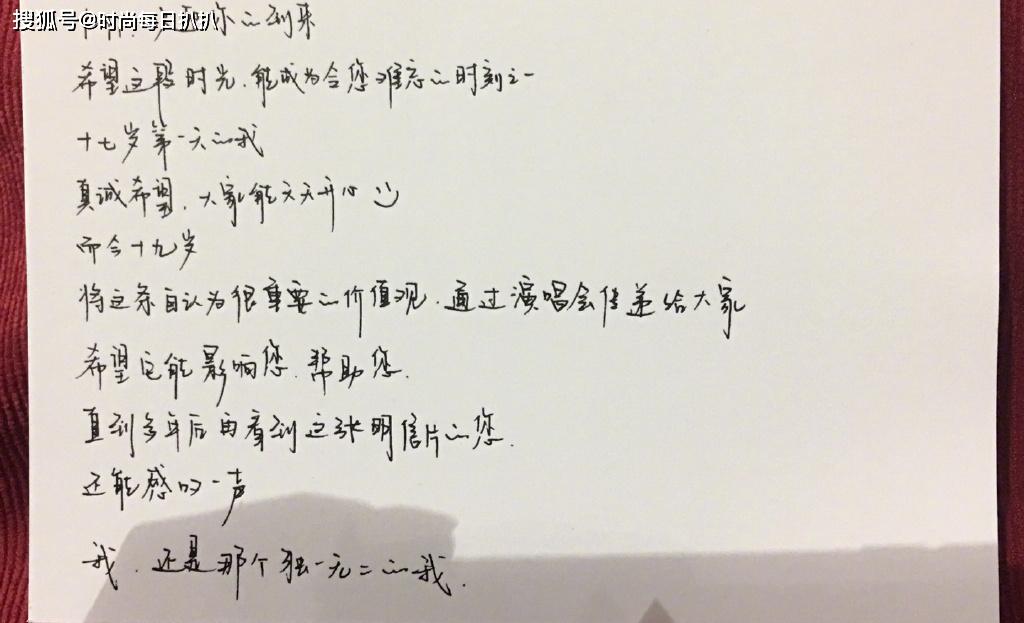 搜狐号@时尚每日扒扒
你的到来
希望这段时光,能成为令您难忘的时刻之一
十七岁第一天的我
真诚希望,大家能天天开心
而今十九岁
将这条自认为很重要的价值观,通过演唱会传递给大家
希望它能影响您,帮助您.
直到多年后再看到这张明信片的您.
还能感叹一声
我,还是那个独一无二的我.